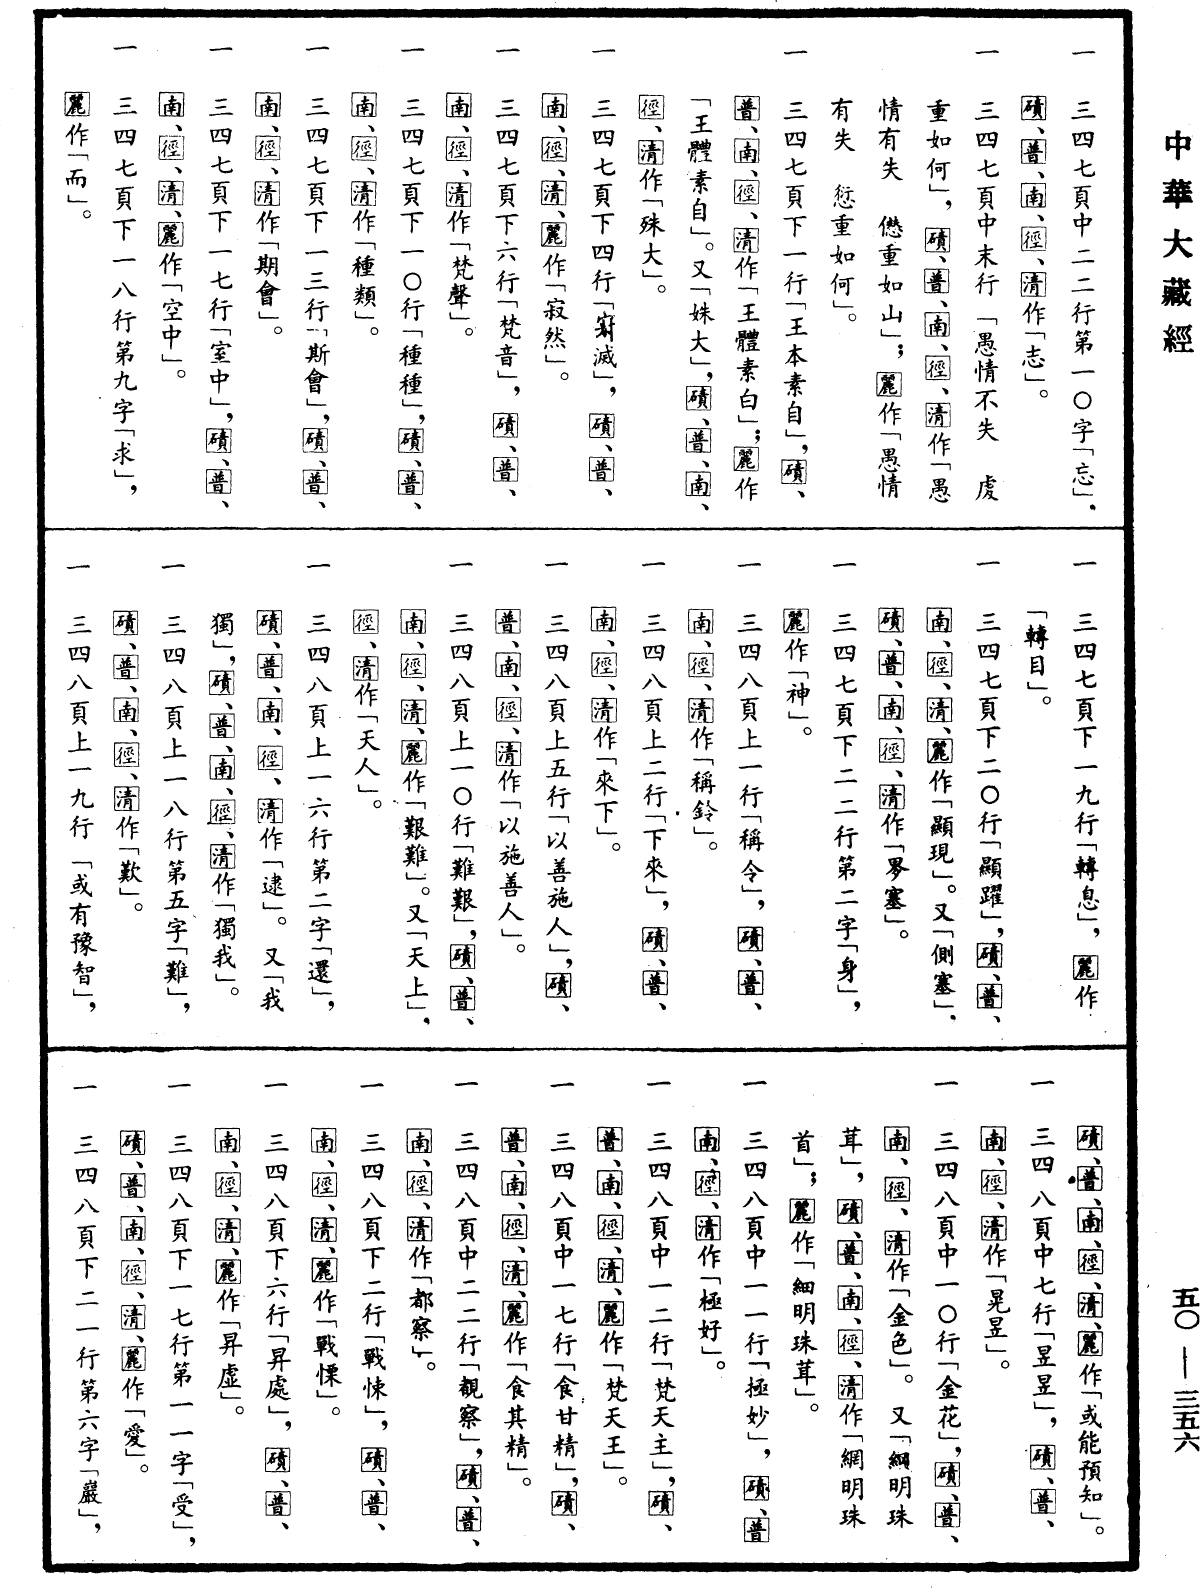 中華大藏經
一　三四七頁中二二行第一〇字「忘」，
磧、普、南、徑、清作「志」。
一　三四七頁中末行「愚情不失　虔
重如何」，磧、普、南、徑、清作「愚
情有失　僁重如山」；麗作「愚情
有失　愆重如何」。
一　三四七頁下一行「王本素自」，磧、
普、南、徑、清作「王體素白」；麗作
「王體素自」。又「姝大」，磧、普、南、
徑、清作「殊大」。
一　三四七頁下四行「𡨜滅」，磧、普、
南、徑、清、麗作「寂然」。
一　三四七頁下六行「梵音」，磧、普、
南、徑、清作「梵聲」。
一　三四七頁下一〇行「種種」，磧、普、
南、徑、清作「種類」。
一　三四七頁下一三行「斯會」，磧、普、
南、徑、清作「期會」。
一　三四七頁下一七行「室中」，磧、普、
南、徑、清、麗作「空中」。
一　三四七頁下一八行第九字「求」，
麗作「而」。
一　三四七頁下一九行「轉息」，麗作
「轉目」。
一　三四七頁下二〇行「顯躍」，磧、普、
南、徑、清、麗作「顯現」。又「側塞」，
磧、普、南、徑、清作「畟塞」。
一　三四七頁下二二行第二字「身」，
麗作「神」。
一　三四八頁上一行「稱令」，磧、普、
南、徑、清作「稱鈴」。
一　三四八頁上二行「下來」，磧、普、
南、徑、清作「來下」。
一　三四八頁上五行「以善施人」，磧、
普、南、徑、清作「以施善人」。
一　三四八頁上一〇行「難艱」，磧、普、
南、徑、清、麗作「艱難」。又「天上」，
徑、清作「天人」。
一　三四八頁上一六行第二字「還」，
磧、普、南、徑、清作「逮」。又「我
獨」，磧、普、南、徑、清作「獨我」。
一　三四八頁上一八行第五字「難」，
磧、普、南、徑、清作「歎」。
一　三四八頁上一九行「或有豫智」，
磧、普、南、徑、清、麗作「或能預知」。
一　三四八頁中七行「昱昱」，磧、普、
南、徑、清作「晃昱」。
一　三四八頁中一〇行「金花」，磧、普、
南、徑、清作「金色」。又「綱明珠
茸」，磧、普、南、徑、清作「網明珠
首」；麗作「細明珠茸」。
一　三四八頁中一一行「極妙」，磧、普
南、徑、清作「極好」。
一　三四八頁中一二行「梵天主」，磧、
普、南、徑、清、麗作「梵天王」。
一　三四八頁中一七行「食甘精」，磧、
普、南、徑、清、麗作「食其精」。
一　三四八頁中二二行「覩察」，磧、普、
南、徑、清作「都察」。
一　三四八頁下二行「戰悚」，磧、普、
南、徑、清、麗作「戰慄」。
一　三四八頁下六行「昇處」，磧、普、
南、徑、清、麗作「昇虛」。
一　三四八頁下一七行第一一字「受」，
磧、普、南、徑、清、麗作「愛」。
一　三四八頁下二一行第六字「巖」，
五〇—三五六